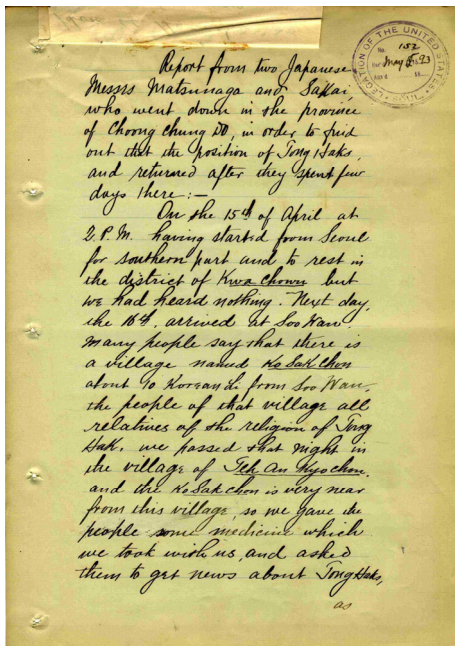 LEGATION OF THE UNITED STATES
No. 152
May 5 93
SEOUL
Report from two Japanese
Messrs Matsunaga and Sakai
who went down in the province
of Choong Chung Do, in order to find
out that the position of Tong Haks,
and returned after they spent few
days there:—
On the 15th of April at
2. P.M. having started from Seoul
for southern part and to rest in
the district of Kwa Chown but
we had heard nothing. Next day,
the 16th, arrived at Soo Wan.
Many people say that there is
a village named Ko Sak Chon
about 10 Korean Li from Soo Wan,
the people of that village all
relatives of the religion of Tong
Hak. we passed that night in
the village of Teh An Kyo chon,
and the Ko Sak chon is very near
from this village, so we gave the
people some medicine which
we took with us, and asked
them to get news about Tong Haks,
as